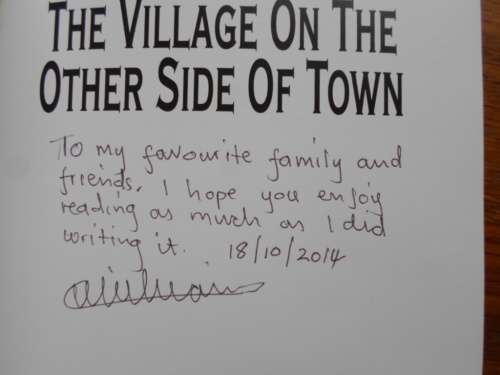 THE VILLAGE ON THE
OTHER SIDE OF TOWN
To my favourite family and
friends, I hope you enjoy
reading as much as I did
writing it. 18/10/2014